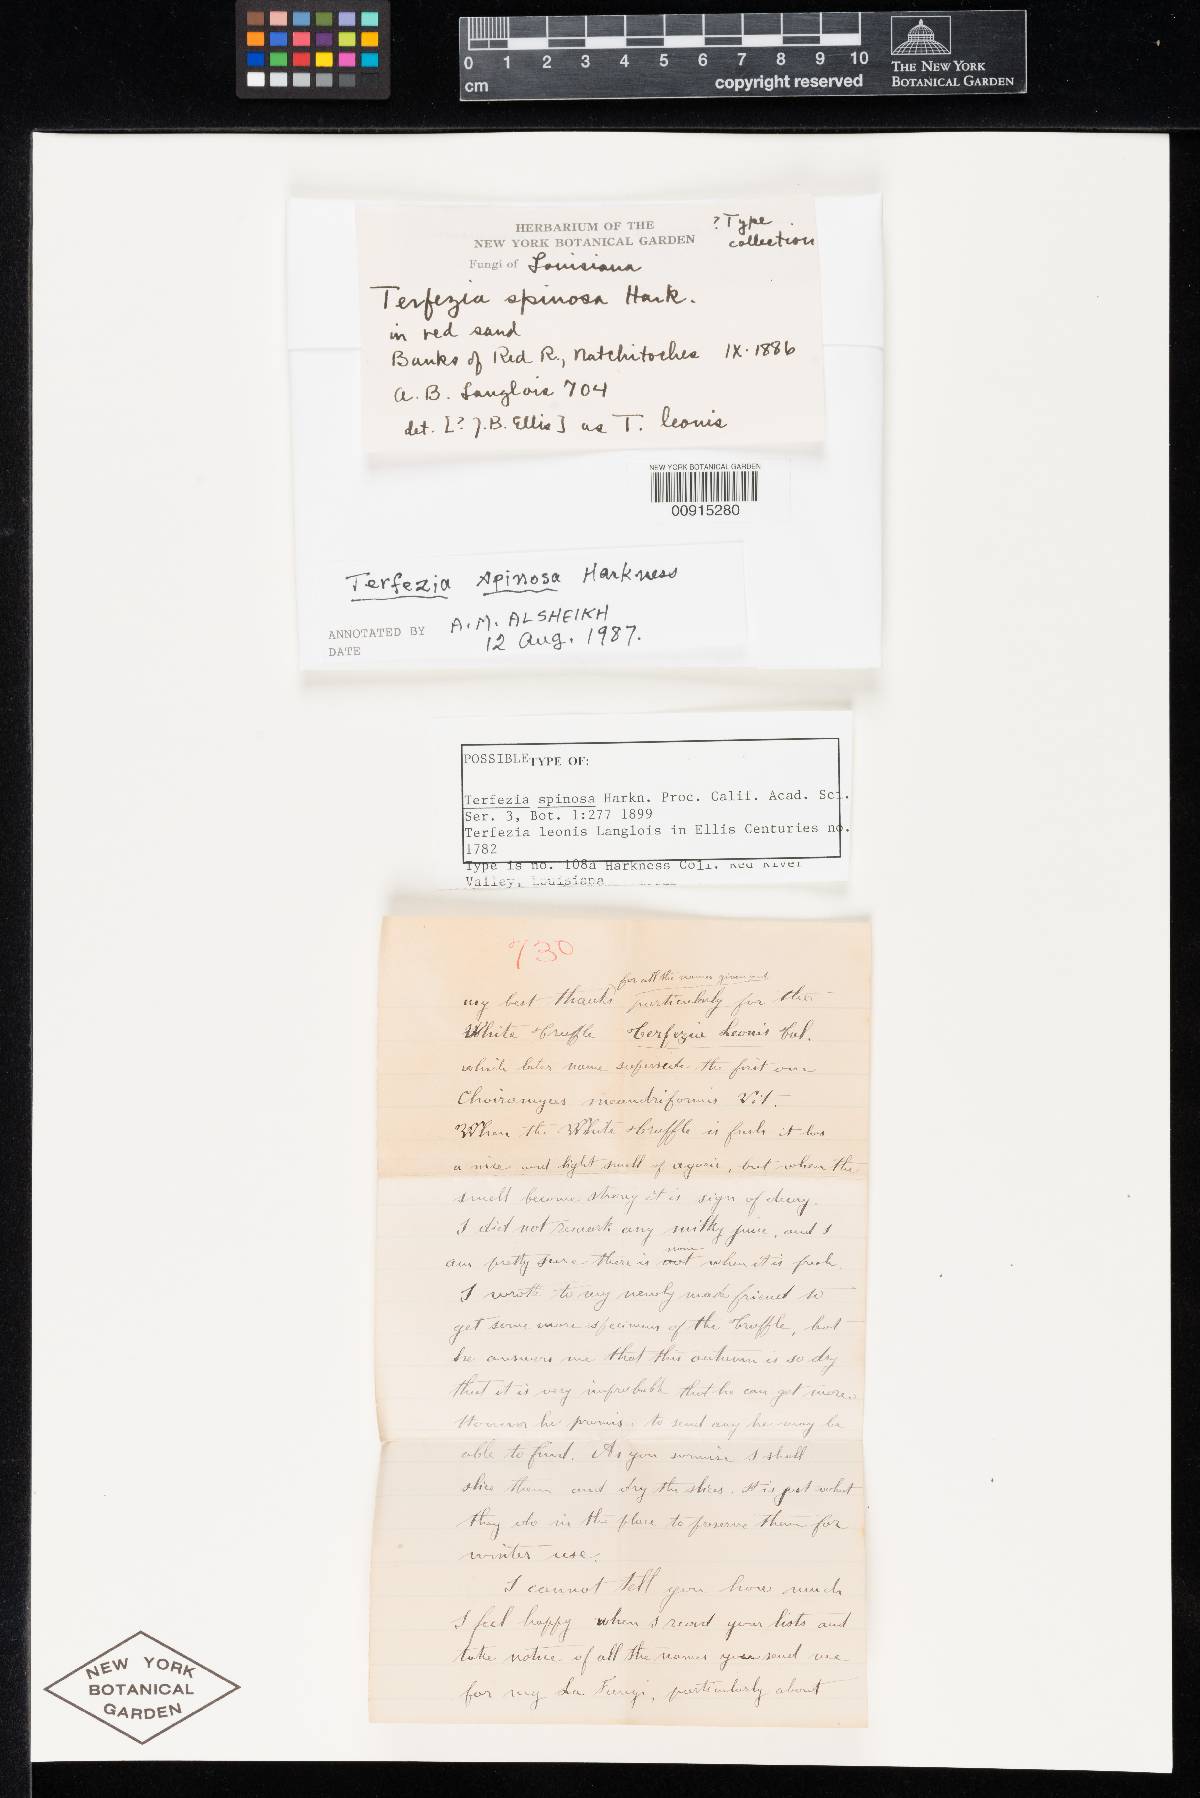 0 1 2 3 4 5 6 7 8 9 10
cm
copyright reserved
THE NEW YORK
BOTANICAL GARDEN
HERBARIUM OF THE
NEW YORK BOTANICAL GARDEN
? Type
collection
Fungi of Louisiana
Terfezia spinosa Hark.
in red sand
Banks of Red R., Natchitoches IX·1886
A. B. Langlois 704
det. [? J.B. Ellis] as T. leonis
NEW YORK BOTANICAL GARDEN
00915280
Terfezia spinosa Harkness
ANNOTATED BY A.M. ALSHEIKH
DATE 12 Aug. 1987.
POSSIBLE TYPE OF:
Terfezia spinosa Harkn. Proc. Calif. Acad. Sci.
Ser. 3, Bot. 1:277 1899
Terfezia leonis Langlois in Ellis Centuries no.
1782
Type is no. 108a Harkness Coll. Red River
Valley, Louisiana
730
for all the names given and
my best thanks particularly for the
White Truffle Terfezia Leonis Tul.
which later name supersede the first one
Choiromyces meandriformis Vit.
When the White Truffle is fresh it has
a nice and light smell of agaric, but when the
smell become strong it is sign of decay.
I did not remark any milky juice, and I
none
am pretty sure there is not when it is fresh.
I wrote to my newly made friend to
get some more specimens of the Truffle, but
he answers me that this autumn is so dry
that it is very improbable that he can get more.
However he promise to send any he may be
able to find. As you surmise I shall
slice them and dry the slices. It is just what
they do in the place to preserve them for
winter use.
I cannot tell you how much
I feel happy when I read your lists and
take notice of all the names you send me
for my La. Fungi, particularly about
NEW YORK
BOTANICAL
GARDEN